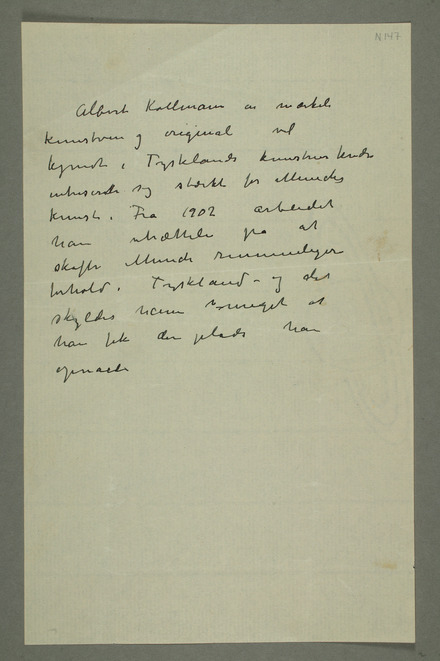 N 147
Albert Kollmann en mærkelig
kunstven og original vel
kjendt i Tysklands kunstnerkredse
interesserte sig stærkt for Munchs
kunst. Fra 1902 arbeidet
han utrættelig paa at
skaffe Munch rummeligere
forhold i Tyskland – og det
skyldes ham meget at
han fik den plads han
opnaade